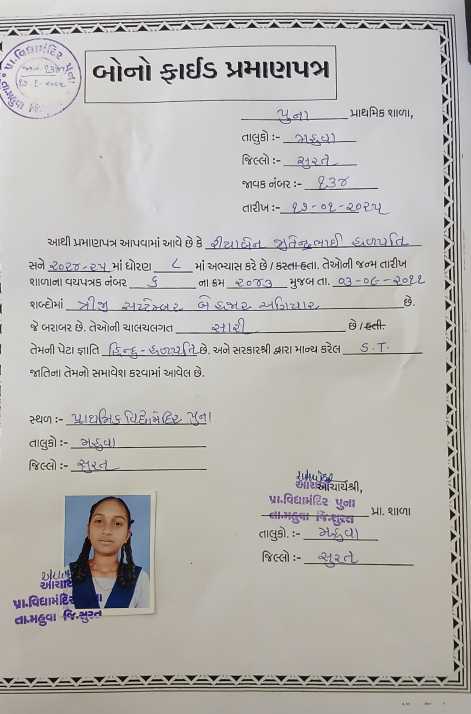 પ્રા.વિદ્યામંદિર પુના
બોનો ફાઈડ પ્રમાણપત્ર
પુના પ્રાથમિક શાળા,
તાલુકો :- મહુવા
જિલ્લો :- સુરત
જાવક નંબર :- ૧૩૪
તારીખ :- ૧૭-૦૧-૨૦૨૫
આથી પ્રમાણપત્ર આપવામાં આવે છે કે રીયાબેન જીતેન્દ્રભાઈ હળપતિ
સને ૨૦૨૪-૨૫ માં ધોરણ ૮ માં અભ્યાસ કરે છે / કરતા હતા. તેઓની જન્મ તારીખ
શાળાના વયપત્રક નંબર ૬ ના ક્રમ ૨૦૭૩ મુજબ તા. ૦૩-૦૯-૨૦૧૧
શબ્દોમાં ત્રીજી સપ્ટેમ્બર બે હજાર અગિયાર છે.
જે બરાબર છે. તેઓની ચાલચલગત સારી છે / હતી.
તેમની પેટા જ્ઞાતિ હિન્દુ-હળપતિ છે. અને સરકારશ્રી દ્વારા માન્ય કરેલ S.T.
જાતિના તેમનો સમાવેશ કરવામાં આવેલ છે.
સ્થળ :- પ્રાથમિક વિદ્યામંદિર પુના
તાલુકો :- મહુવા
જિલ્લો :- સુરત
આચાર્યશ્રી,
પ્રા.વિદ્યામંદિર પુના
તા.મહુવા જિ.સુરત પ્રા. શાળા
તાલુકો. :- મહુવા
જિલ્લો :- સુરત
આચાર્ય
પ્રા.વિદ્યામંદિર
તા.મહુવા જિ.સુરત